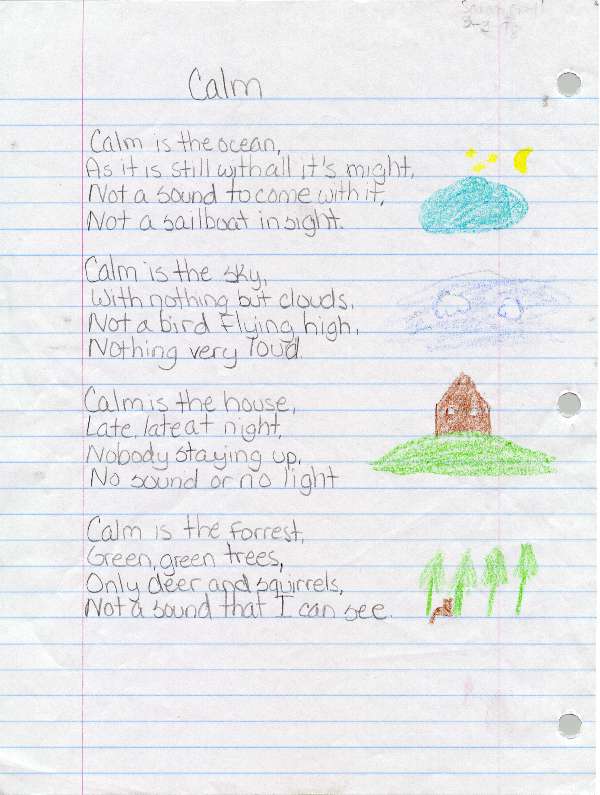 Calm
Calm is the ocean,
As it is still with all it's might,
Not a sound to come with it,
Not a sailboat in sight.
Calm is the sky,
With nothing but clouds,
Not a bird flying high,
Nothing very loud.
Calm is the house,
Late, late at night,
Nobody staying up,
No sound or no light
Calm is the forrest,
Green, green trees,
Only deer and squirrels,
Not a sound that I can see.